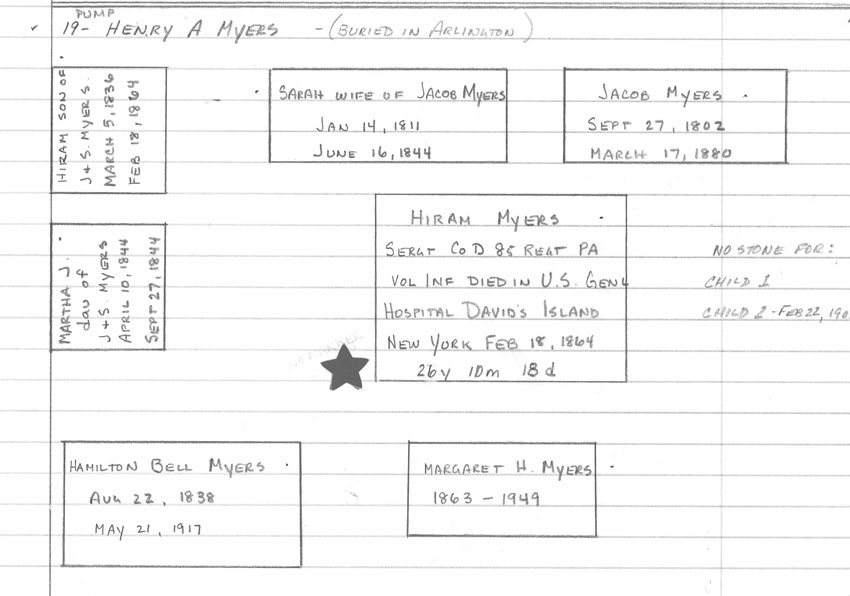 PUMP
✓ 19- HENRY A MYERS - (BURIED IN ARLINGTON)
HIRAM SON OF
J + S. MYERS.
MARCH 5, 1836
FEB 18, 1864
SARAH WIFE OF JACOB MYERS
JAN 14, 1811
JUNE 16, 1844
JACOB MYERS.
SEPT 27, 1802
MARCH 17, 1880
MARTHA J.
dau of
J + S. MYERS
APRIL 10, 1844
SEPT 27, 1844
HIRAM MYERS
SERGT CO D 85 REGT PA
VOL INF DIED IN U.S. GENL
HOSPITAL DAVID'S ISLAND
NEW YORK FEB 18, 1864
26y 10m 18d
NO STONE FOR:
CHILD 1
CHILD 2 - FEB 22, 190
HAMILTON BELL MYERS
AUG 22, 1838
MAY 21, 1917
MARGARET H. MYERS
1863 - 1949